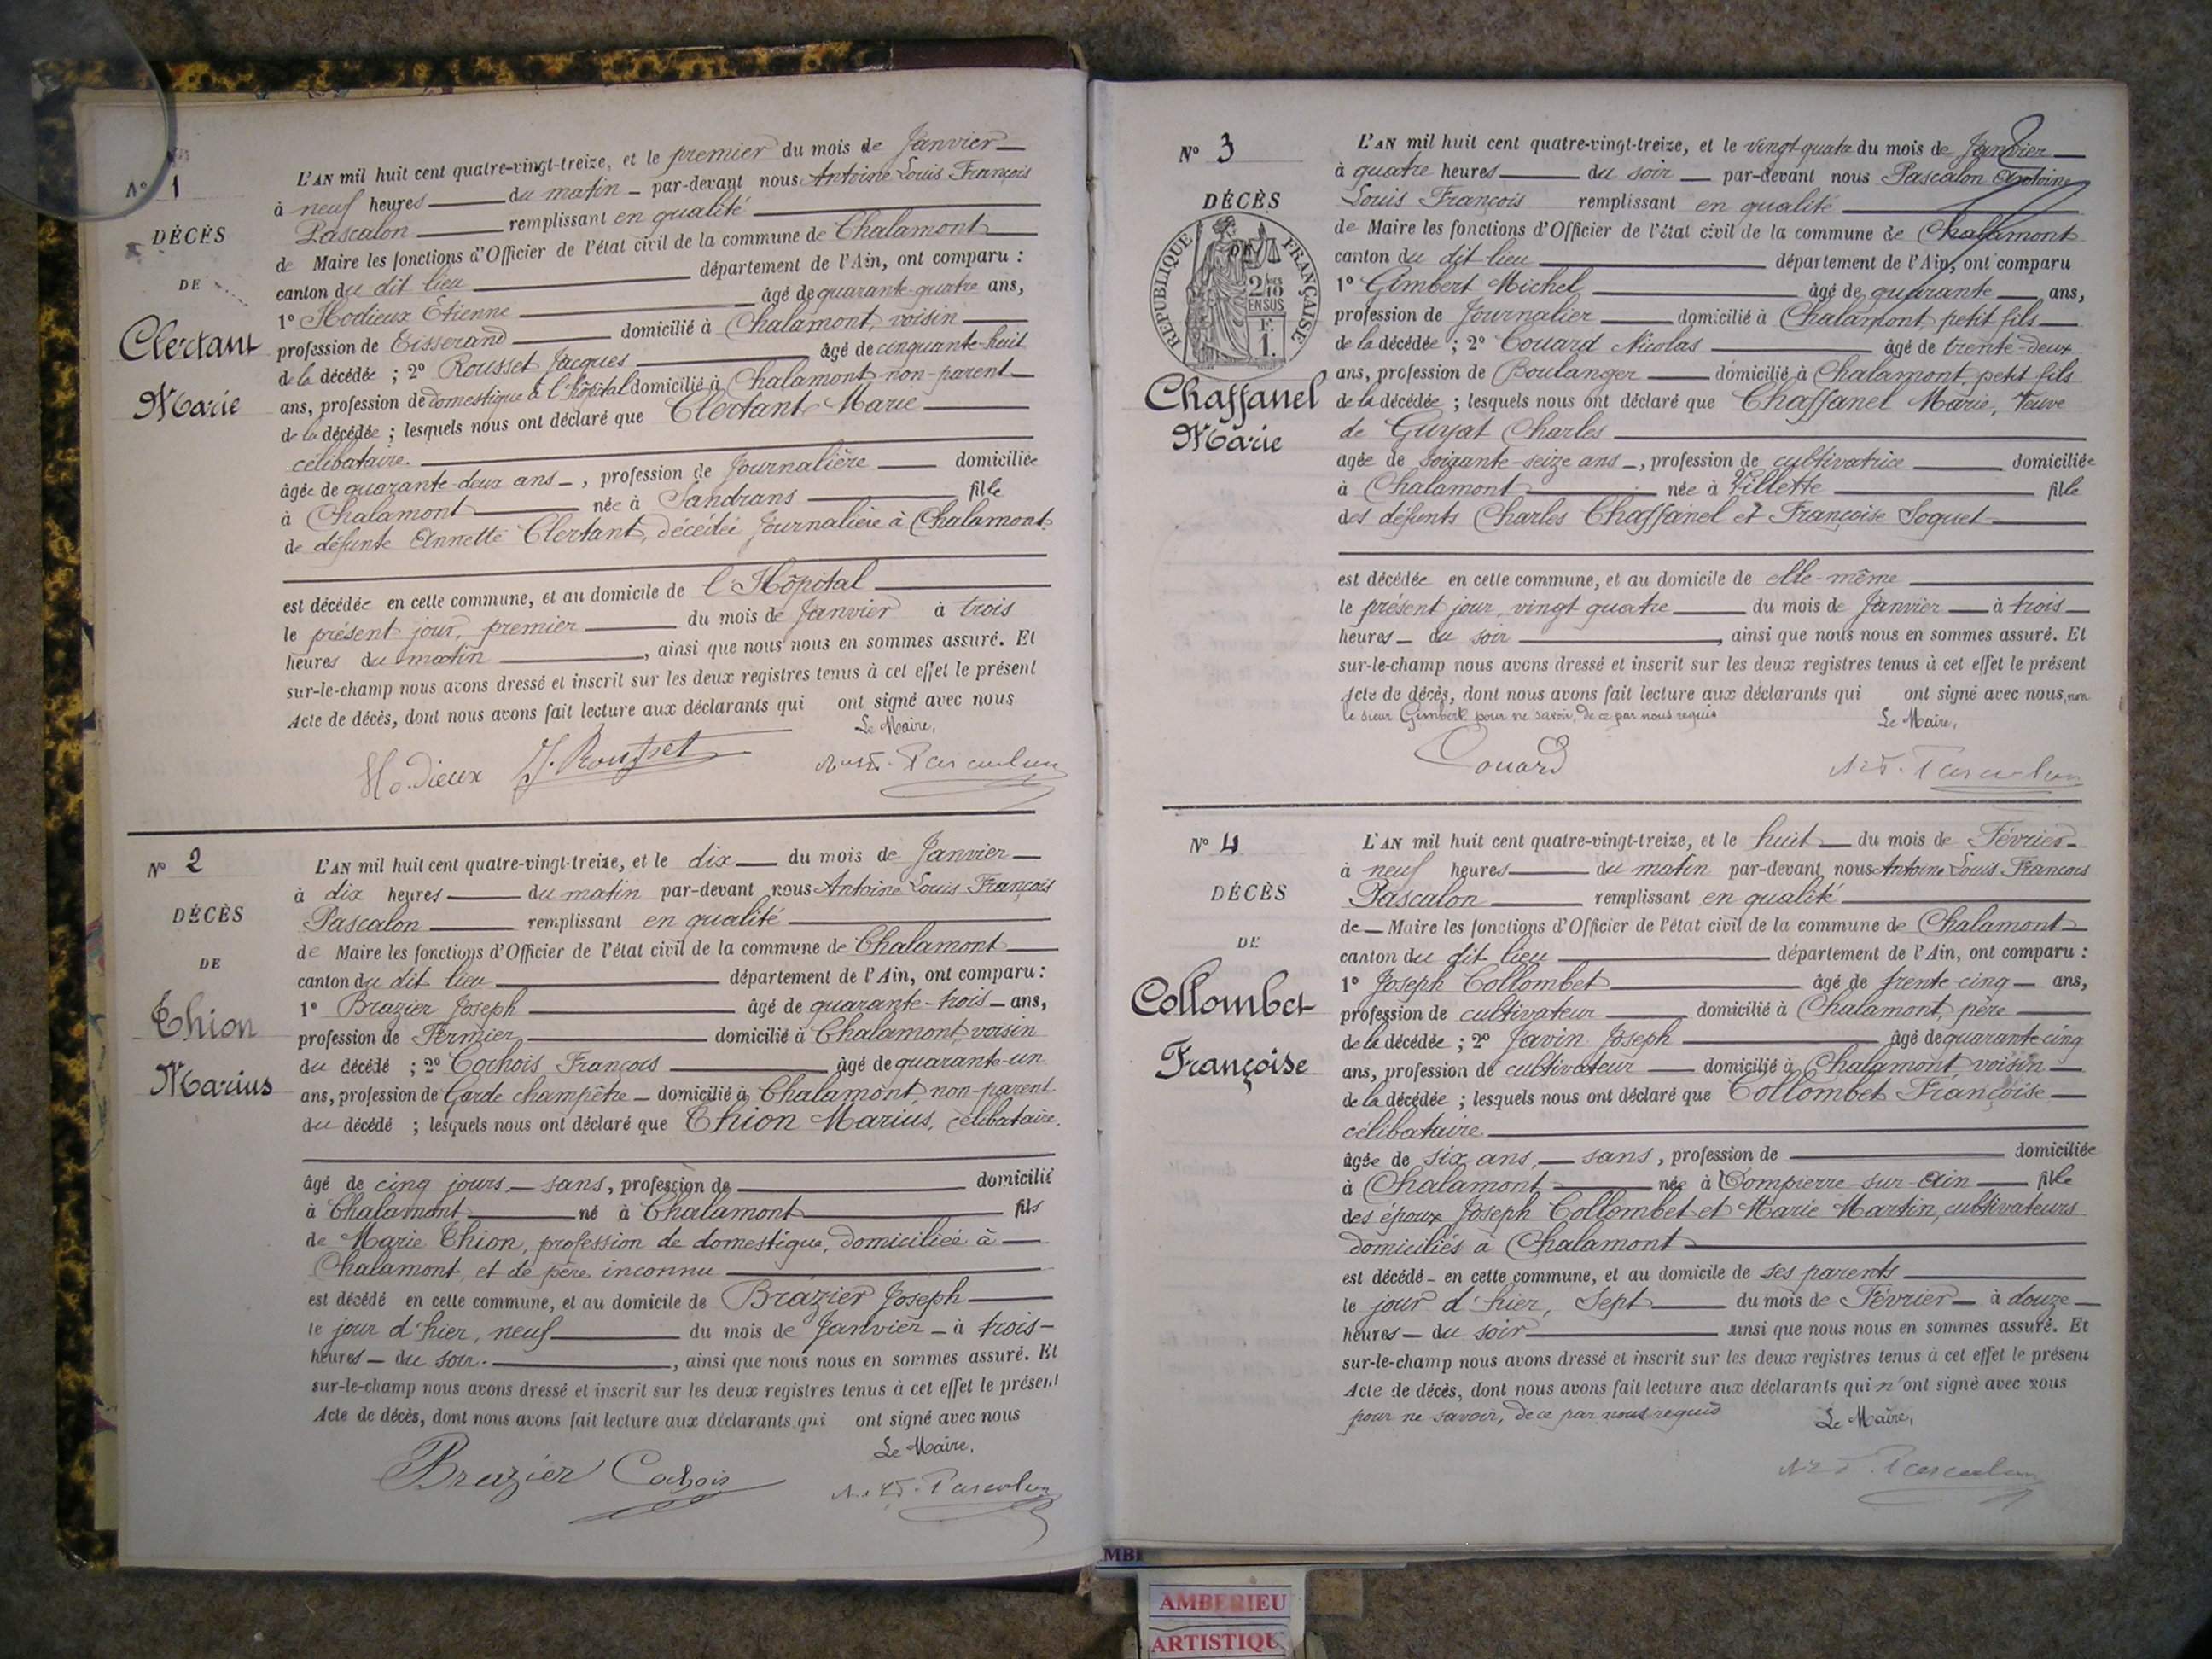 N° 1
DÉCÈS
DE
Clertant
Marie
L'AN mil huit cent quatre-vingt-treize, et le premier du mois de Janvier
à neuf heures du matin par-devant nous Antoine Louis François
Pascalon remplissant en qualité
de Maire les fonctions d'Officier de l'état civil de la commune de Chalamont
canton du dit lieu département de l'Ain, ont comparu :
1° Hodieux Etienne âgé de quarante-quatre ans,
profession de Tisserand domicilié à Chalamont, voisin
de la décédée ; 2° Rousset Jacques âgé de cinquante-huit
ans, profession de domestique à l'hôpital domicilié à Chalamont non-parent
de la décédée ; lesquels nous ont déclaré que Clertant Marie
célibataire.
âgée de quarante-deux ans, profession de Journalière domiciliée
à Chalamont née à Sandrans fille
de défunte Annette Clertant, décédée Journalière à Chalamont
est décédée en cette commune, et au domicile de l'Hôpital
le présent jour, premier du mois de Janvier à trois
heures du matin, ainsi que nous nous en sommes assuré. Et
sur-le-champ nous avons dressé et inscrit sur les deux registres tenus à cet effet le présent
Acte de décès, dont nous avons fait lecture aux déclarants qui ont signé avec nous
Le Maire,
Hodieux J. Rousset Pascalon
N° 2
DÉCÈS
DE
Thion
Marius
L'AN mil huit cent quatre-vingt-treize, et le dix du mois de Janvier
à dix heures du matin par-devant nous Antoine Louis François
Pascalon remplissant en qualité
de Maire les fonctions d'Officier de l'état civil de la commune de Chalamont
canton du dit lieu département de l'Ain, ont comparu :
1° Brazier Joseph âgé de quarante-trois ans,
profession de Fermier domicilié à Chalamont, voisin
du décédé ; 2° Cochois François âgé de quarante-un
ans, profession de Garde champêtre domicilié à Chalamont non-parent
du décédé ; lesquels nous ont déclaré que Thion Marius, célibataire.
âgé de cinq jours, sans, profession de domicilié
à Chalamont né à Chalamont fils
de Marie Thion, profession de domestique, domiciliée à
Chalamont, et de père inconnu
est décédé en cette commune, et au domicile de Brazier Joseph
le jour d'hier, neuf du mois de Janvier à trois
heures du soir., ainsi que nous nous en sommes assuré. Et
sur-le-champ nous avons dressé et inscrit sur les deux registres tenus à cet effet le présent
Acte de décès, dont nous avons fait lecture aux déclarants qui ont signé avec nous
Le Maire,
Brazier Cochois Pascalon
N° 3
DÉCÈS
DE
RÉPUBLIQUE FRANÇAISE
2/10 EN SUS
F. 1.
Chaffanel
Marie
L'AN mil huit cent quatre-vingt-treize, et le vingt-quatre du mois de Janvier
à quatre heures du soir par-devant nous Pascalon Antoine
Louis François remplissant en qualité
de Maire les fonctions d'Officier de l'état civil de la commune de Chalamont
canton du dit lieu département de l'Ain, ont comparu
1° Gimbert Michel âgé de quarante ans,
profession de Journalier domicilié à Chalamont, petit fils
de la décédée ; 2° Couard Nicolas âgé de trente-deux
ans, profession de Boulanger domicilié à Chalamont, petit fils
de la décédée ; lesquels nous ont déclaré que Chaffanel Marie, Veuve
de Guyat Charles
agée de soixante-seize ans, profession de cultivatrice domiciliée
à Chalamont née à Villette fille
des défunts Charles Chaffanel et Françoise Soquet
est décédée en cette commune, et au domicile de elle-même
le présent jour, vingt quatre du mois de Janvier à trois
heures du soir, ainsi que nous nous en sommes assuré. Et
sur-le-champ nous avons dressé et inscrit sur les deux registres tenus à cet effet le présent
Acte de décès, dont nous avons fait lecture aux déclarants qui ont signé avec nous, non
le sieur Gimbert pour ne savoir, de ce par nous requis
Le Maire,
Couard Pascalon
N° 4
DÉCÈS
DE
Collombet
Françoise
L'AN mil huit cent quatre-vingt-treize, et le huit du mois de Février
à neuf heures du matin par-devant nous Antoine Louis François
Pascalon remplissant en qualité
de Maire les fonctions d'Officier de l'état civil de la commune de Chalamont
canton du dit lieu département de l'Ain, ont comparu :
1° Joseph Collombet âgé de trente-cinq ans,
profession de cultivateur domicilié à Chalamont, père
de la décédée ; 2° Javin Joseph âgé de quarante cinq
ans, profession de cultivateur domicilié à Chalamont, voisin
de la décédée ; lesquels nous ont déclaré que Collombet Françoise
célibataire
âgée de six ans, sans, profession de domiciliée
à Chalamont née à Dompierre-sur-Ain fille
des époux Joseph Collombet et Marie Martin, cultivateurs
domiciliés à Chalamont
est décédé en cette commune, et au domicile de ses parents
le jour d'hier, Sept du mois de Février à douze
heures du soir ainsi que nous nous en sommes assuré. Et
sur-le-champ nous avons dressé et inscrit sur les deux registres tenus à cet effet le présent
Acte de décès, dont nous avons fait lecture aux déclarants qui n'ont signé avec nous
pour ne savoir, de ce par nous requis
Le Maire,
Pascalon
AMBERIEU
ARTISTIQU